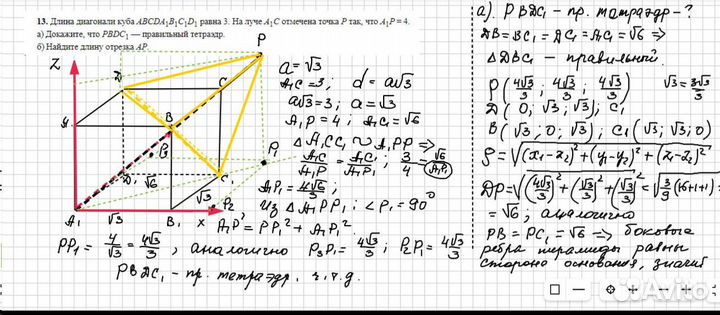 13. Длина диагонали куба ABCDA₁B₁C₁D₁ равна 3. На луче A₁C отмечена точка P так, что A₁P = 4.
а) Докажите, что PBDC₁ — правильный тетраэдр.
б) Найдите длину отрезка AP.
Z
P
D
C
A
B
P₃
P₁
D₁
√6
C₁
√3
P₂
A₁
√3
B₁
X
a = √3
A₁C = 3; d = a√3
a√3 = 3; a = √3
A₁P = 4; A₁C₁ = √6
△ A₁CC₁ ∾ A₁PP₁ ⇒
A₁C/A₁P = A₁C₁/A₁P₁; 3/4 = √6/A₁P₁
A₁P₁ = 4√6/3;
Из △A₁PP₁: ∠P₁ = 90°
A₁P² = PP₁² + A₁P₁²
PP₁ = 4/√3 = 4√3/3; аналогично P₃P₁ = 4√3/3; P₂P₁ = 4√3/3
PBDC₁ - пр. тетраэдр, ч.т.д.
а). PBDC₁ - пр. тетраэдр - ?
DB = BC₁ = DC₁ = A₁C₁ = √6 ⇒
△DBC₁ - правильный.
P(4√3/3; 4√3/3; 4√3/3) √3 = 3√3/3
D(0; √3; √3); C₁
B(√3; 0; √3); C₁(√3; √3; 0)
ρ = √(x₁-x₂)² + (y₁-y₂)² + (z₁-z₂)²
DP = √(4√3/3)² + (√3/3)² + (√3/3)² = √3/9(16+1+1) =
= √6; аналогично
PB = PC₁ = √6 ⇒ боковые
ребра пирамиды равны
стороне основания, значит
Avito